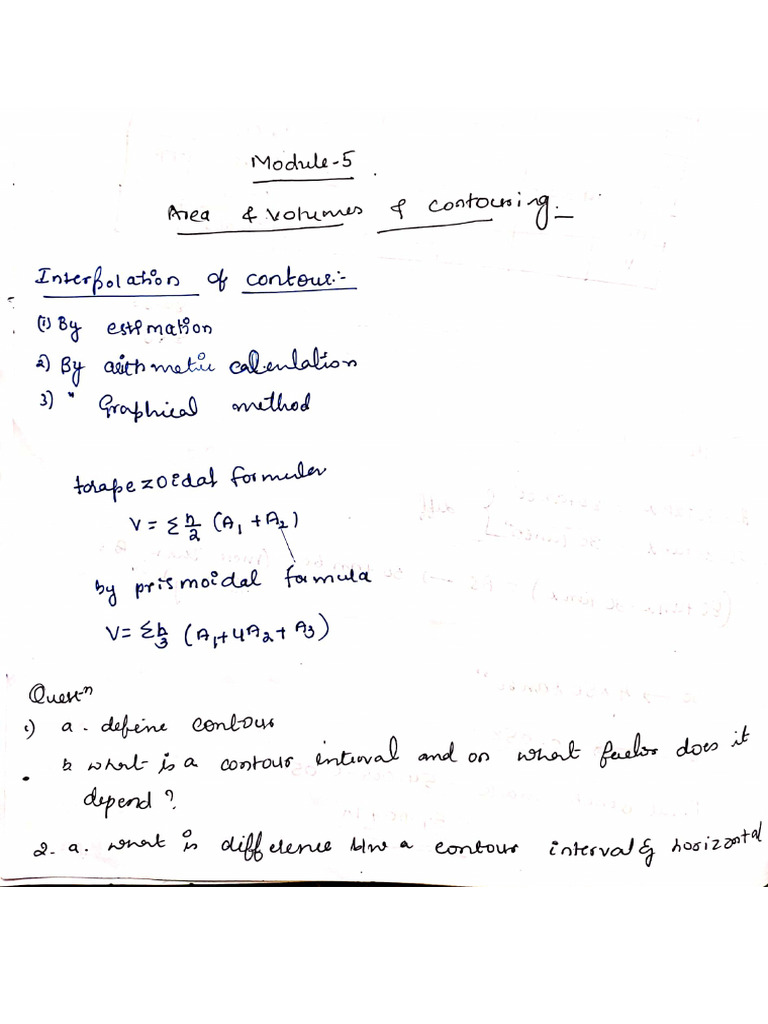 Module-5
Area & volumes & contouring
Interpolation of contour:-
(1) By estimation
2) By arithmetic calculation
3) " Graphical method
trapezoidal formula
V = Σ h/2 (A1 + A2)
by prismoidal formula
V = Σ h/3 (A1 + 4A2 + A3)
Quest-n
1) a. define contour
b what is a contour interval and on what factor does it
depend?
2. a. what is difference b/w a contour interval & horizontal